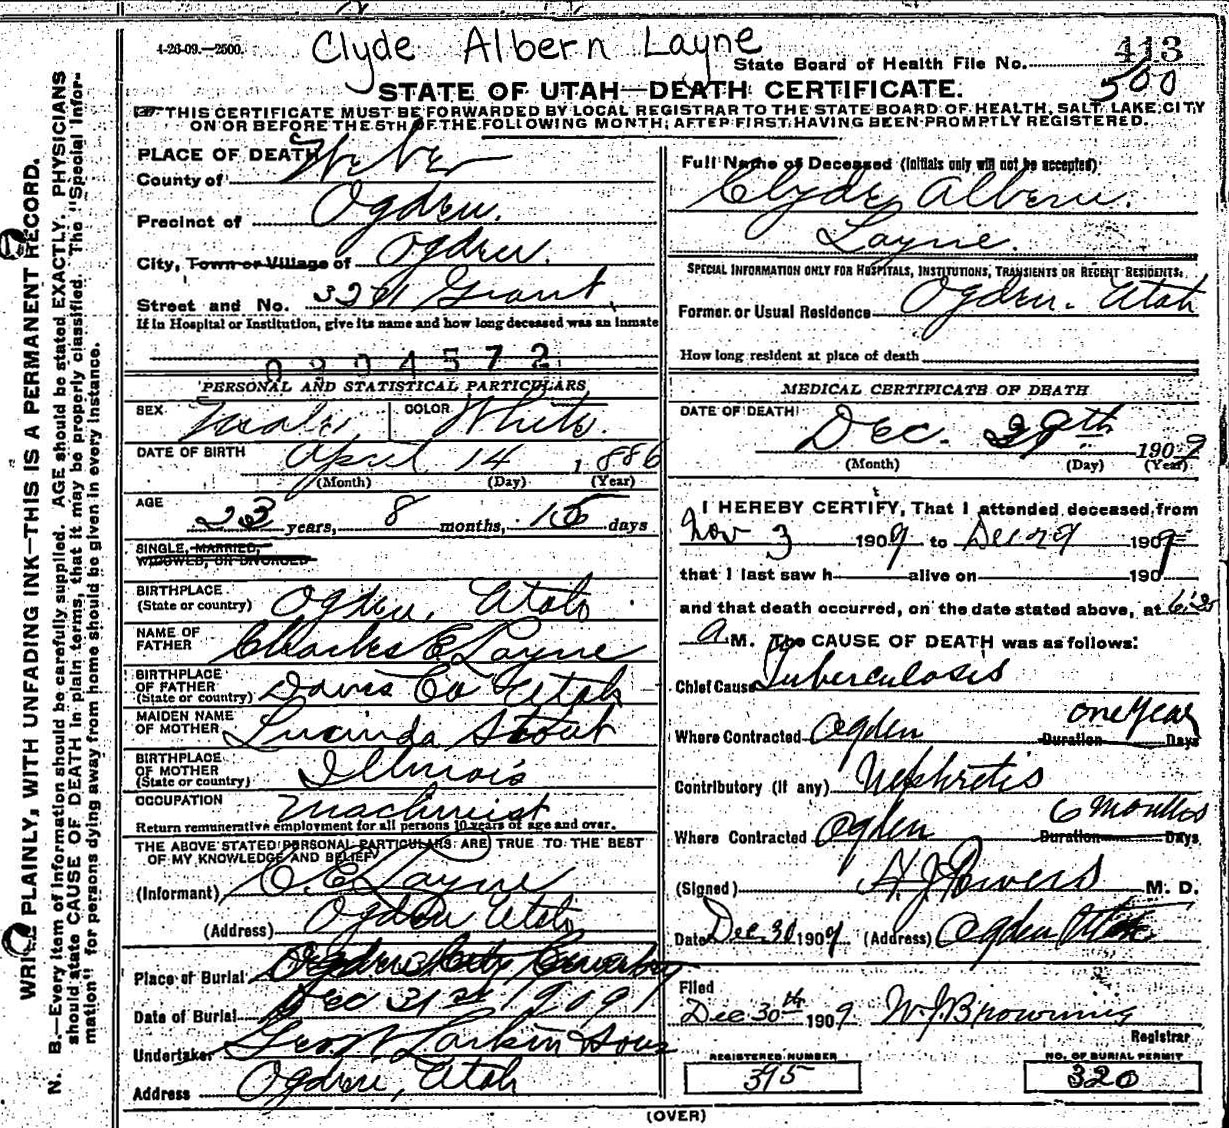 4-26-09.—2500.
Clyde Albern Layne
413
State Board of Health File No.
500
STATE OF UTAH—DEATH CERTIFICATE.
THIS CERTIFICATE MUST BE FORWARDED BY LOCAL REGISTRAR TO THE STATE BOARD OF HEALTH, SALT LAKE CITY
ON OR BEFORE THE 5TH OF THE FOLLOWING MONTH, AFTER FIRST HAVING BEEN PROMPTLY REGISTERED.
WRITE PLAINLY, WITH UNFADING INK—THIS IS A PERMANENT RECORD.
N. B.—Every item of information should be carefully supplied. AGE should be stated EXACTLY. PHYSICIANS
should state CAUSE OF DEATH in plain terms, that it may be properly classified. The "Special Infor-
mation" for persons dying away from home should be given in every instance.
PLACE OF DEATH
County of Weber
Precinct of Ogden.
City, Town or Village of Ogden.
Street and No. Grant
If in Hospital or Institution, give its name and how long deceased was an inmate
0904572
PERSONAL AND STATISTICAL PARTICULARS
SEX Male COLOR White.
DATE OF BIRTH April 14 1886
(Month) (Day) (Year)
AGE 23 years, 8 months, 15 days
SINGLE, MARRIED,
WIDOWED, OR DIVORCED
BIRTHPLACE
(State or country) Ogden, Utah
NAME OF
FATHER Charles E Layne
BIRTHPLACE
OF FATHER
(State or country) Davis Co Utah
MAIDEN NAME
OF MOTHER Lucinda Stout
BIRTHPLACE
OF MOTHER
(State or country) Illinois
OCCUPATION Machinist
Return remunerative employment for all persons 10 years of age and over.
THE ABOVE STATED PERSONAL PARTICULARS ARE TRUE TO THE BEST
OF MY KNOWLEDGE AND BELIEF
(Informant) C. E. Layne
(Address) Ogden Utah
Place of Burial Ogden City Cemetery
Date of Burial Dec 31st 1909
Undertaker Larkin Sons
Address Ogden, Utah
Full Name of Deceased (Initials only will not be accepted)
Clyde Albern.
Layne.
SPECIAL INFORMATION ONLY FOR HOSPITALS, INSTITUTIONS, TRANSIENTS OR RECENT RESIDENTS.
Former or Usual Residence Ogden. Utah
How long resident at place of death
MEDICAL CERTIFICATE OF DEATH
DATE OF DEATH
Dec. 29th 1909
(Month) (Day) (Year)
I HEREBY CERTIFY, That I attended deceased from
Nov 3 1909 to Dec 29 1909
that I last saw h alive on 190
and that death occurred, on the date stated above, at 6:30
a M. The CAUSE OF DEATH was as follows:
Chief Cause Tuberculosis
one Year
Where Contracted Ogden Duration Days
Contributory (if any) Nephretis
6 months
Where Contracted Ogden Duration Days
(Signed) H J Powers M. D.
Date Dec 30 1909 (Address) Ogden Utah
Filed
Dec 30th 1909. W. J. Browning
Registrar
REGISTERED NUMBER
395
NO. OF BURIAL PERMIT
320
(OVER)